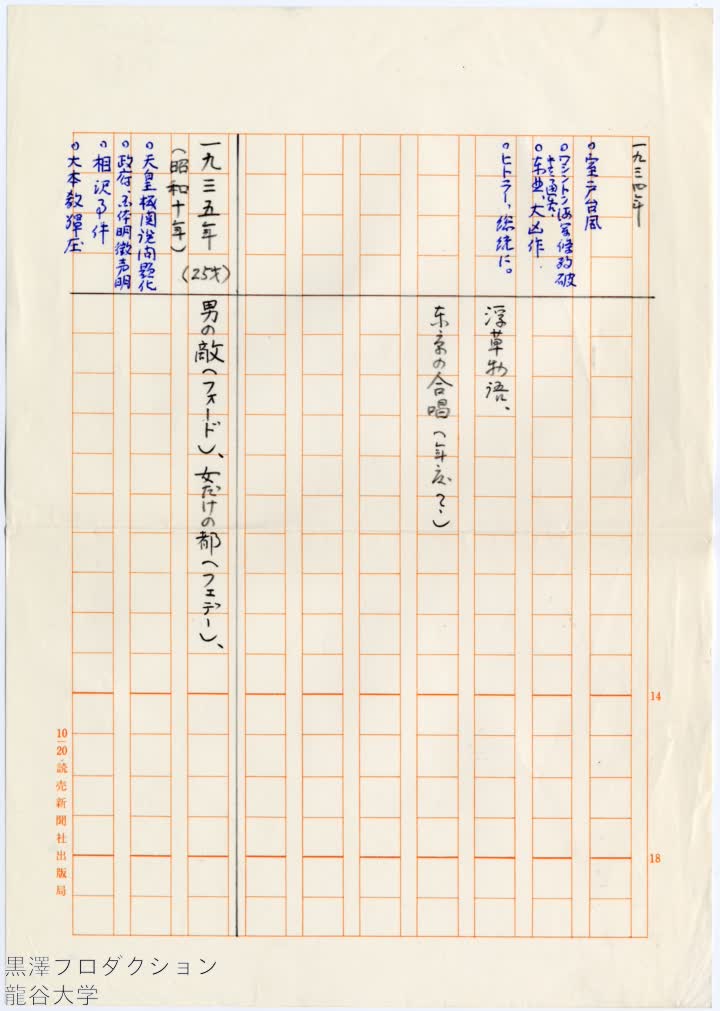 一九三四年
○室戸台風
○ワシントン海軍條約破
キを通告、
○东北、大凶作
○ヒトラー、総統に。
浮草物語、
东京の合唱(年度?)
一九三五年(25才)
(昭和十年)
○天皇機関説問題化
○政府、国体明徴声明
○相沢事件
○大本教弾圧
男の敵(フォード)、女だけの都(フェデー)、
14
18
10-20 読売新聞社出版局
黒澤プロダクション
龍谷大学